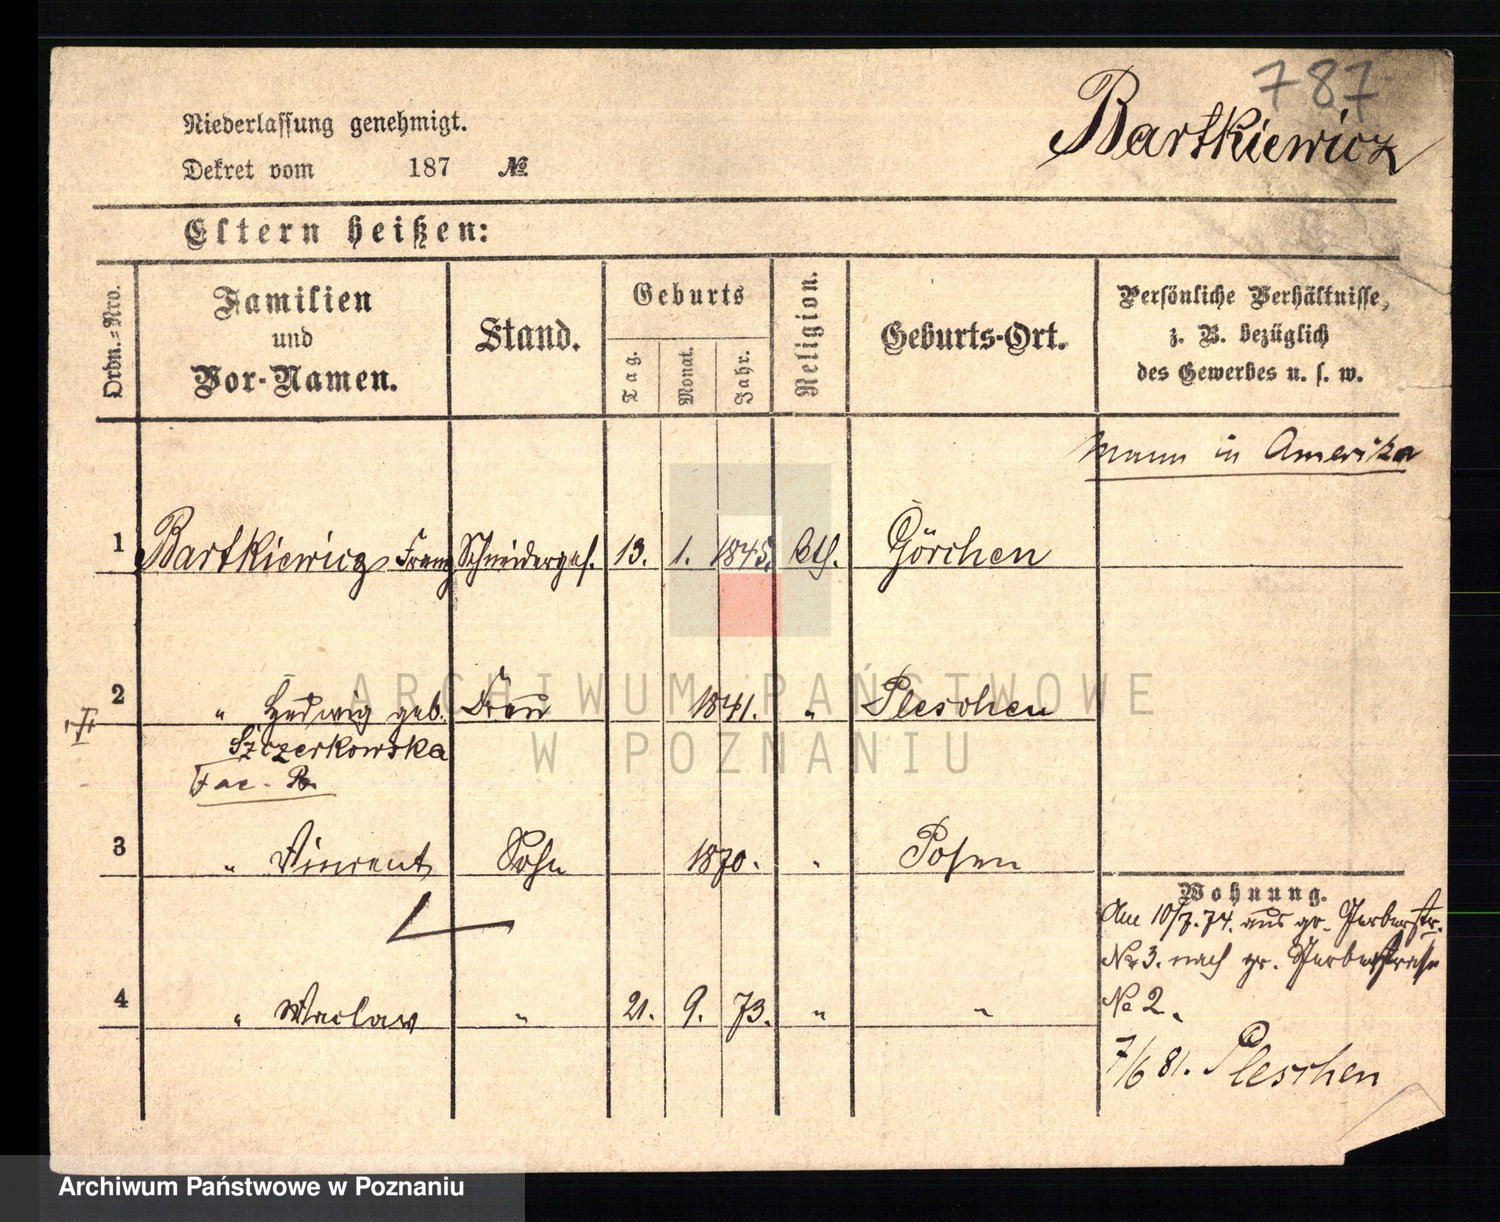 787
Bartkiewicz
Niederlassung genehmigt.
Dekret vom 187 №
Eltern heißen:
Ordn.=Nro.
Familien
und
Vor-Namen.
Stand.
Geburts
Tag.
Monat.
Jahr.
Religion.
Geburts-Ort.
Persönliche Verhältnisse,
z. B. bezüglich
des Gewerbes u. s. w.
Mann in Amerika
1 Bartkiewicz Franz Schneiderges. 13. 1. 1845. kth. Görchen
2 " Hedwig geb. Frau 1841. " Pleschen
Szczerkowska
3 " Vincent Sohn 1870. " Posen
Wohnung.
Am 10/7.74. aus gr. Gerberstr.
№ 3. nach gr. Gerberstraße
№ 2.
4 " Waclaw " 21. 9. 73. " "
7/6 81. Pleschen
ARCHIWUM PAŃSTWOWE
W POZNANIU
Archiwum Państwowe w Poznaniu